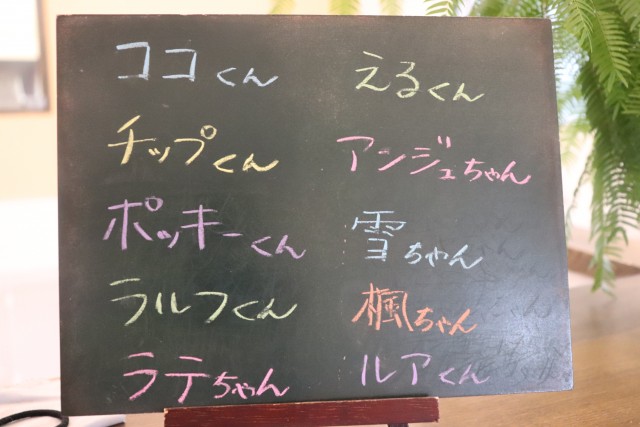 ココくん
チップくん
ポッキーくん
ラルフくん
ラテちゃん
えるくん
アンジュちゃん
雪ちゃん
楓ちゃん
ルアくん